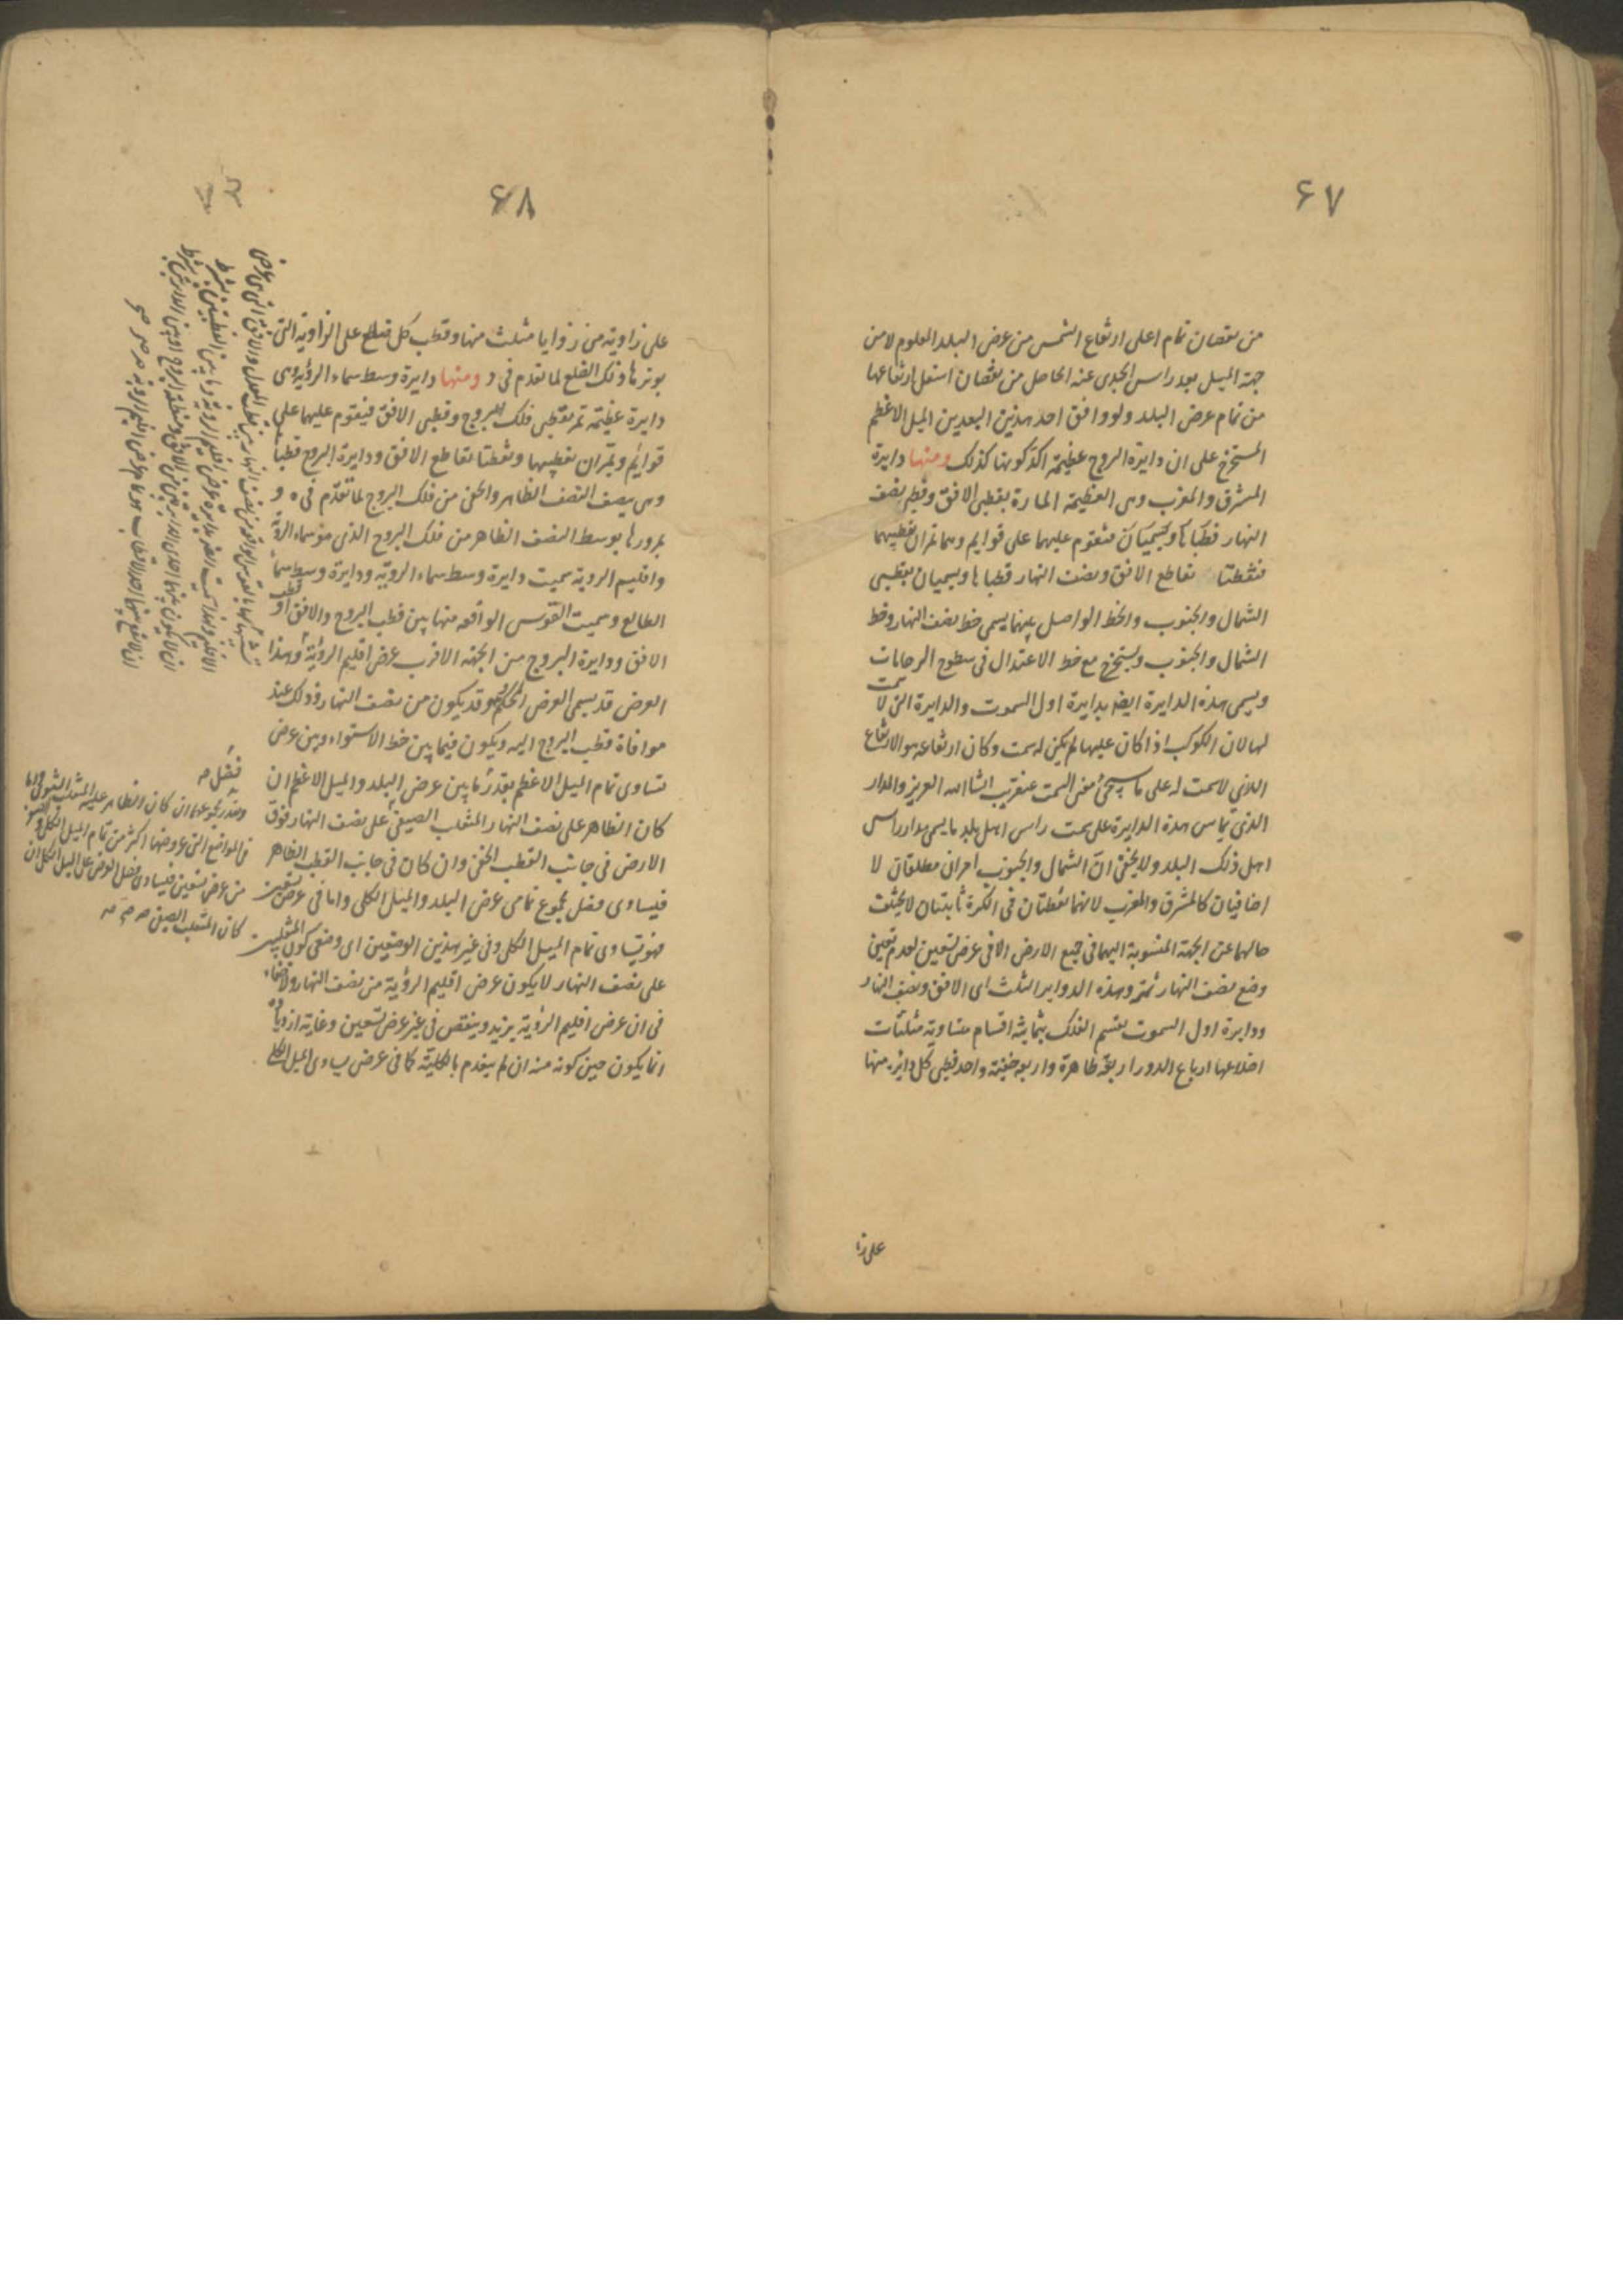 ٦٧
من نقصان تمام اعلى ارتفاع الشمس من عرض البلد المعلوم لا من
جهة الميل بعد راس الجدى عنه الحاصل من نقصان اسفل ارتفاعها
من تمام عرض البلد ولو وافق احد هذين البعدين الميل الاعظم
المستخرج على ان دايرة البروج عظيمة اكد كونها كذلك ومنها دايرة
المشرق والمغرب وهى العظيمة المارة بقطبى الافق وقطبى نصف
النهار قطباها ويجيبان فتقوم عليهما على قوايم وهما تمران بقطبيهما
فنقطتا تقاطع الافق ونصف النهار قطباها ويسميان بقطبى
الشمال والجنوب والخط الواصل بينهما يسمى خط نصف النهار وخط
الشمال والجنوب ويستخرج مع خط الاعتدال فى سطوح الرخامات
ويسمى هذه الدايرة ايضا بدايرة اول السموت والدايرة التى لا سمت
لها لان الكوكب اذا كان عليها لم يكن له سمت وكان ارتفاعه هو الارتفاع
الذى لا سمت له على ما سيجئ معنى السمت عنقريب انشا الله العزيز والمدار
الذى يماس هذه الدايرة على سمت راس اهل بلد ما يسمى مدار راس
اهل ذلك البلد ولا يخفى ان الشمال والجنوب امران مطلقان لا
اضافيان كالمشرق والمغرب لانهما نقطتان فى الكرة ثابتتان لا يختلف
حالهما عن الجهة المنسوبة اليهما فى جميع الارض الا فى عرض تسعين لعدم تعين
وضع نصف النهار ثمة وهذه الدواير الثلث اى الافق ونصف النهار
ودايرة اول السموت يقسم الفلك بثمانية اقسام متساوية مثلثات
اضلاعها ارباع الدور اربعة ظاهرة واربعة خفية واحد قطبى كل دايرة منها
على زا
٦٨
على زاوية من زوايا مثلث منها وقطب كل ضلع على الزاوية التى
يوترها ذلك الضلع لما تقدم فى و ومنها دايرة وسط سماء الرؤية وهى
دايرة عظيمة تمر بقطبى فلك البروج وقطبى الافق فيقوم عليهما على
قوايم ويمران بقطبيها ونقطتا تقاطع الافق ودايرة البروج قطباها
وهى ينصف النصف الظاهر والخفى من فلك البروج لما تقدم فى ه و
بمرورها بوسط النصف الظاهر من فلك البروج الذى هو سماء الرؤية
واقليم الروية سميت دايرة وسط سماء الروية ودايرة وسط سما
الطالع وسميت القوس الواقعة منها بين قطب البروج والافق او قطب
الافق ودايرة البروج من الجهة الاقرب عرض اقليم الرؤية وهذا
العرض قد يسمى العرض المحكم وهو قد يكون من نصف النهار وذلك عند
موافاة قطب البروج اليه ويكون فيما بين خط الاستواء وبين عرض
يساوى تمام الميل الاعظم بقدر ما بين عرض البلد والميل الاعظم ان
كان الظاهر على نصف النهار المنقلب الصيفى على نصف النهار فوق
الارض فى جانب القطب الخفى وان كان فى جانب القطب الظاهر
فيساوى فضل مجموع تمامى عرض البلد والميل الكلى واما فى عرض تسعين
فهو يساوى تمام الميل الكلى وفى غير هذين الوضعين اى وضعى كون المنقلبين
على نصف النهار لا يكون عرض اقليم الرؤية من نصف النهار ولا خفاء
فى ان عرض اقليم الرؤية يزيد وينقص فى غير عرض تسعين وغاية ازدياده
انما يكون حين كونه منه ان لم ينعدم بالكلية كما فى عرض يساوى الميل الكلى
فضل صه
وبقدر مجموعهما ان كان الظاهر عليه المنقلب الشتوى واما
فى المواضع التى عروضها اكثر من تمام الميل الكلى
من عرض تسعين فيساوى فضل العرض على الميل الكلى ان
كان المنقلب الصيفى